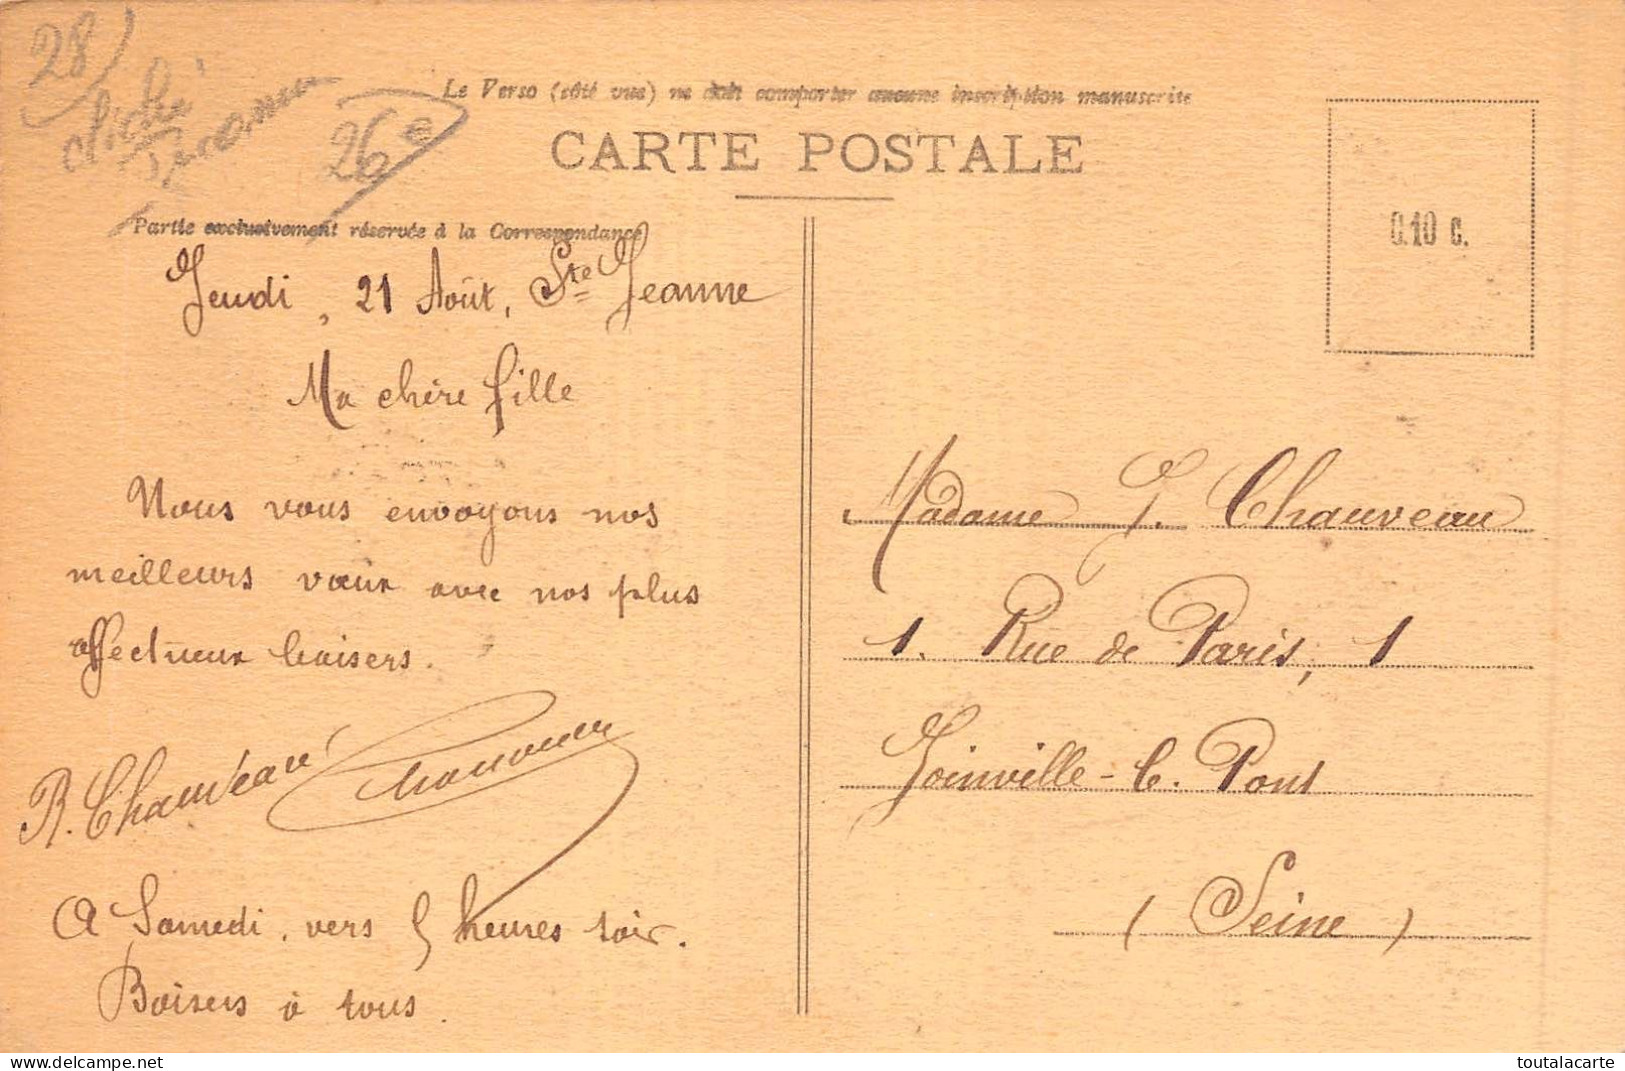 28
cliché
26e
Le Verso (côté vue) ne doit comporter aucune inscription manuscrite
CARTE POSTALE
Partie exclusivement réservée à la Correspondance
0.10 c.
Jeudi, 21 Août, Ste Jeanne
Ma chère fille
Nous vous envoyons nos
meilleurs vœux avec nos plus
affectueux baisers.
R. Chauveau
A Samedi, vers 5 heures soir.
Baisers à tous
Madame J. Chauveau
1. Rue de Paris, 1
Joinville-le-Pont
(Seine)
www.delcampe.net
toutalacarte